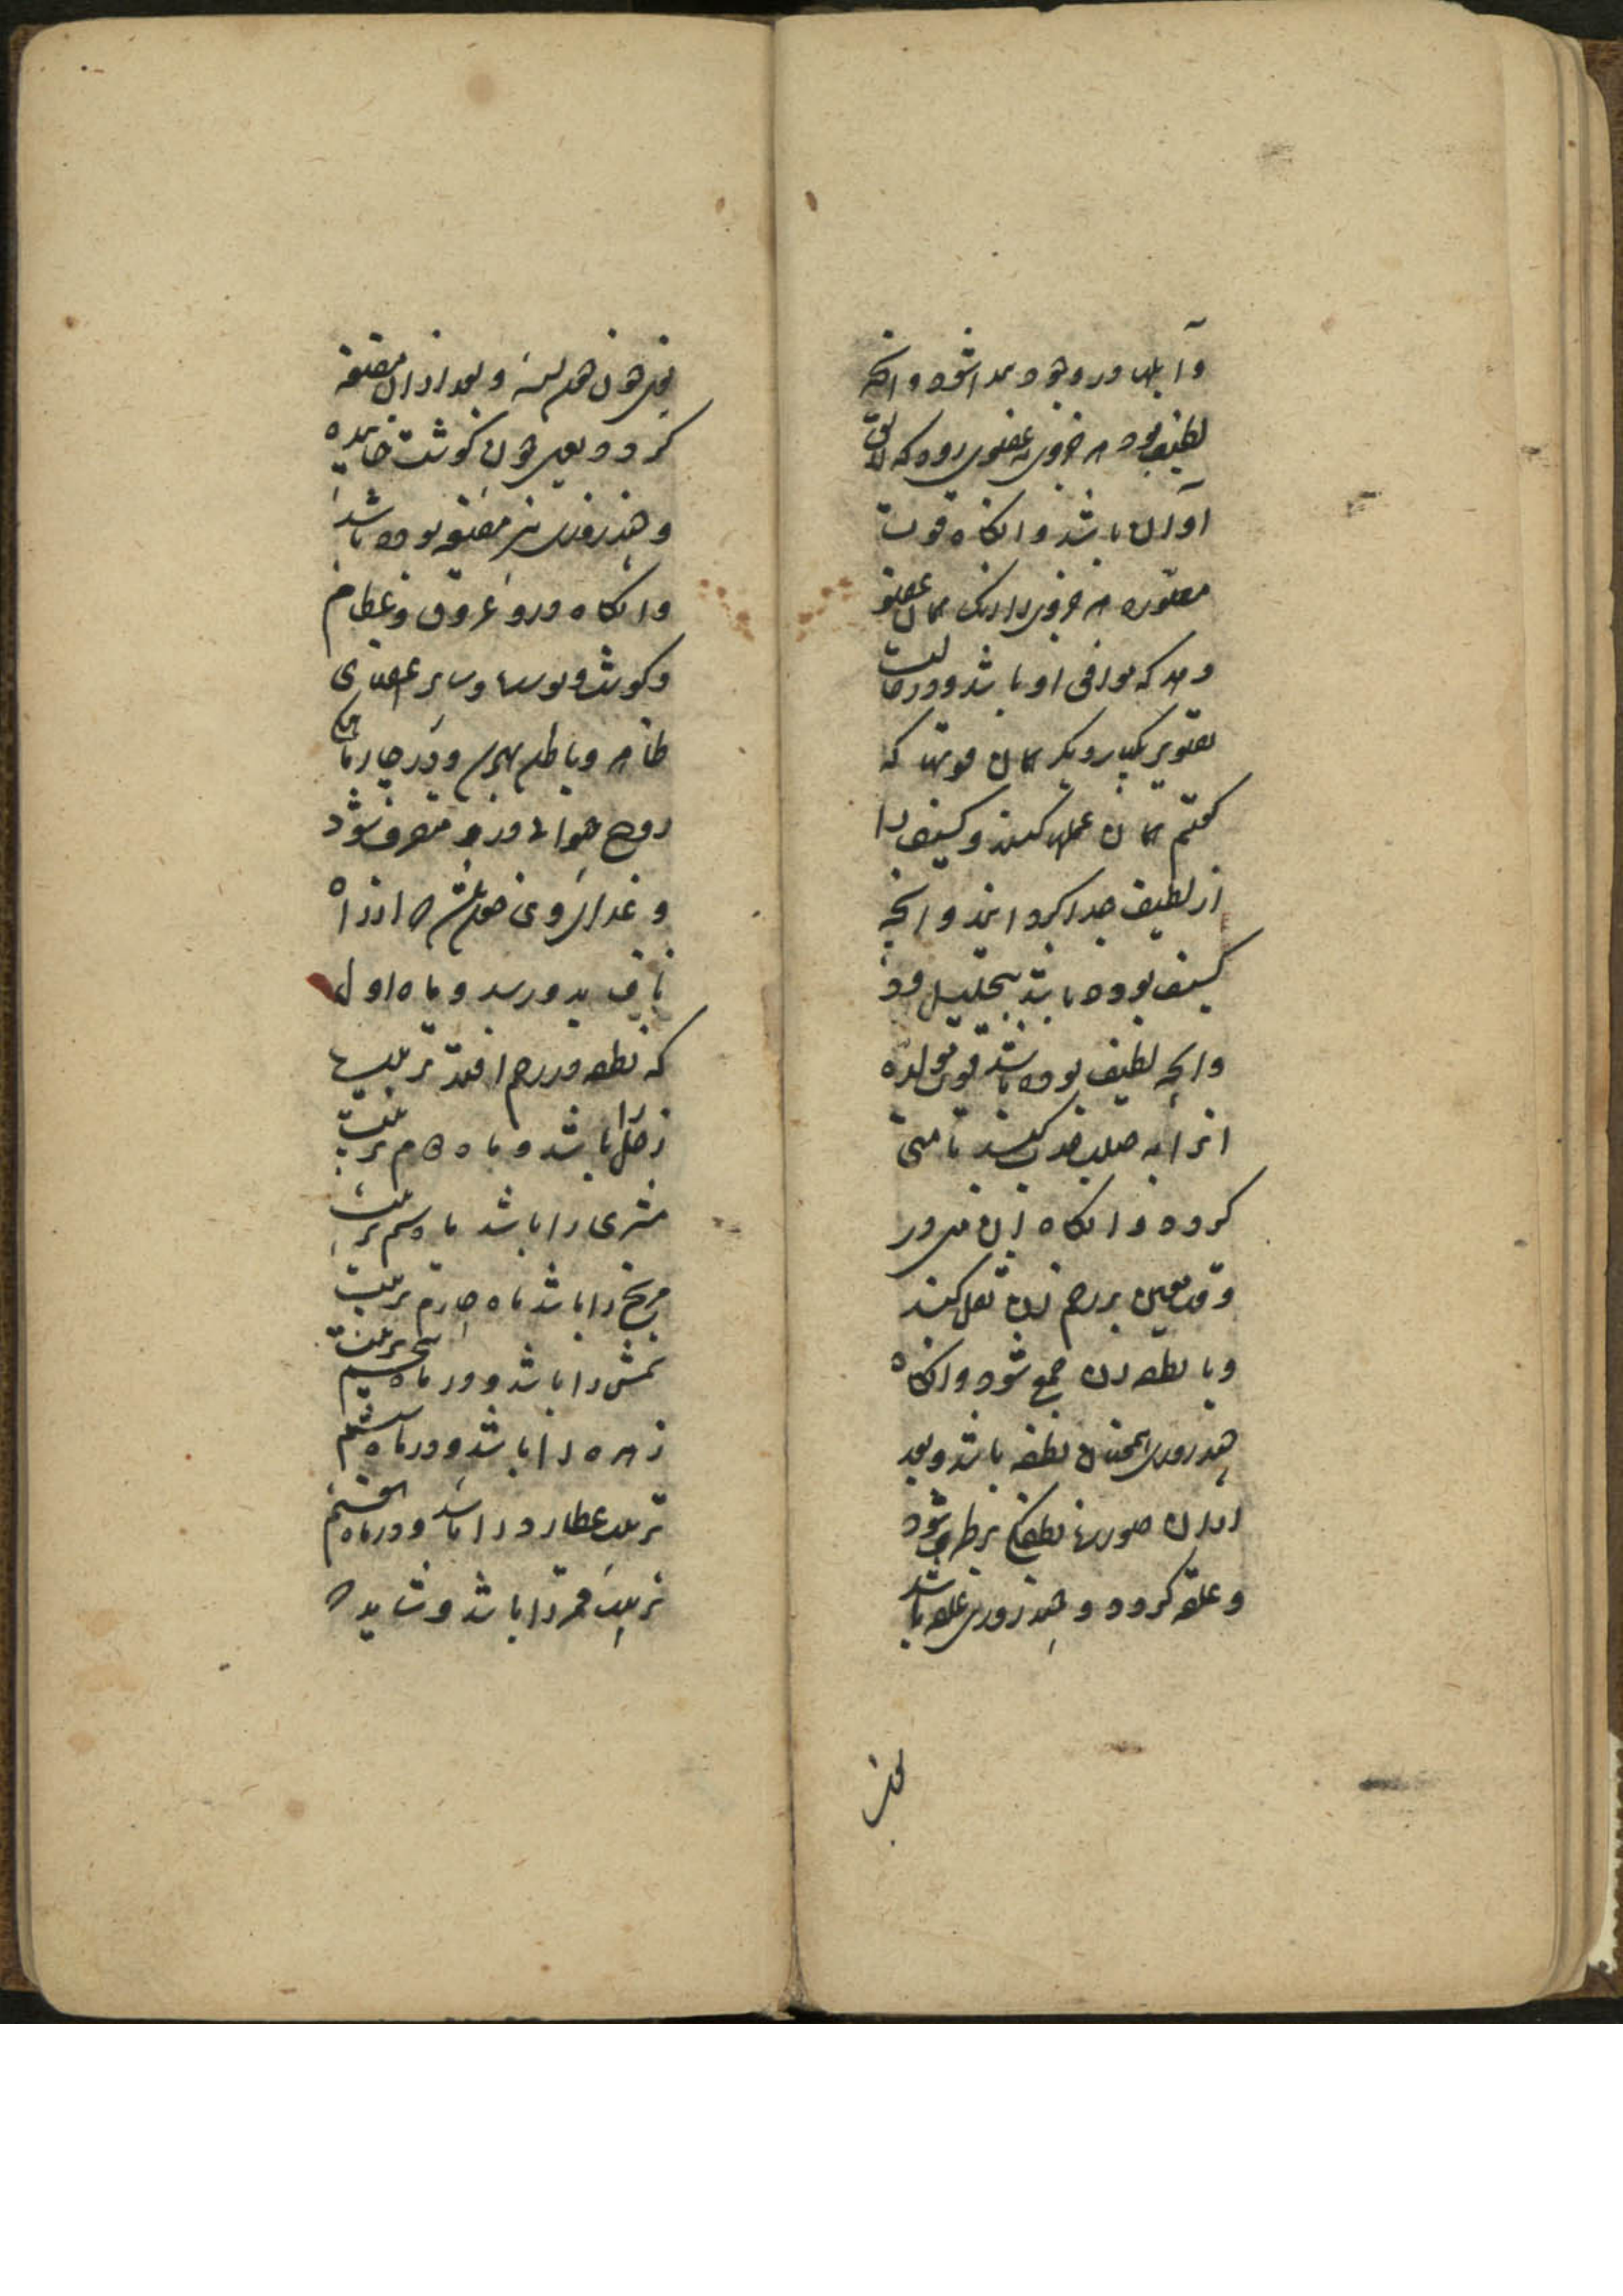 و آبلها در وجود پیدا شود و آنچه
لطیف بود هر جزوی به عضوی رود که لایق
او آن باشد و آنکاه قوت
مصوره هر جزوی را رنک همان عضو
دهد که موافق او باشد و در حالت
تصویر یکبار دیکر همان قوتها که
کفتیم همان عملها کنند و کثیف را
از لطیف جدا کردانند و آنچه
کثیف بوده باشد بتحلیل رود
و آنچه لطیف بوده باشد قوت مولده
آنرا به صلب جذب کند تا منی
کردد و آنکاه آن منی در
وقت معین برحم زن نقل کند
و با نطفه زن جمع شود و آنکاه
چند روزی همچنان نطفه باشد و بعد
از آن صورت نطفکی برطرف شود
و علقه کردد و چند روزی علقه باشد
یعنی چون خون بسته و بعد از آن مضغه
کردد یعنی چون کوشت خاییده
و چند روزی نیز مضغه بوده باشد
و آنکاه درو عروق و عظام
و کوشت و پوست و سایر اعضای
ظاهر و باطن پیدا و در چهار ماهکی
روح حیوانی درو متصرف شود
و غذا از خون حیض از راه
ناف بدو رسد و ماه اول
که نطفه در رحم افتد تربیت
زحل را باشد و ماه دوم تربیت
مشتری را باشد ماه سیم تربیت
مریخ را باشد ماه چهارم تربیت
شمس را باشد و در ماه پنجم تربیت
زهره را باشد و در ماه ششم
تربیت عطارد را باشد و در ماه هفتم
تربیت قمر را باشد و شاید که